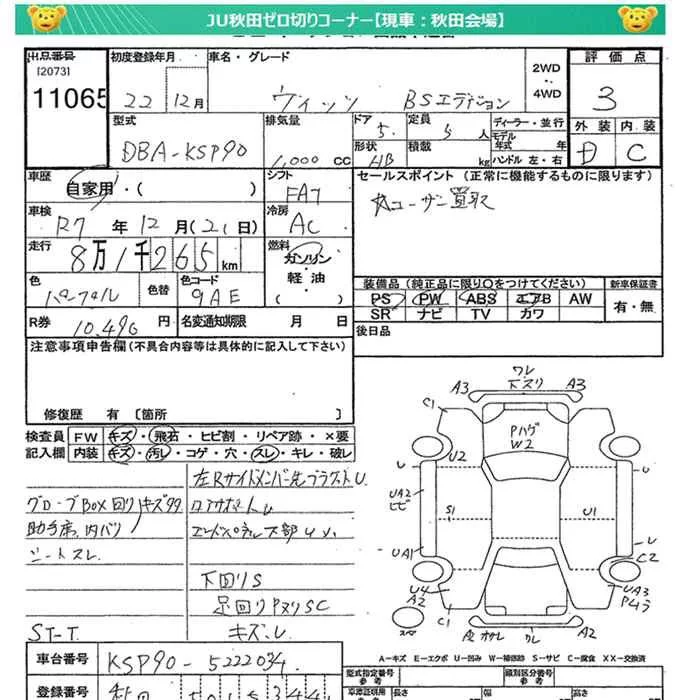 JU秋田ゼロ切りコーナー【現車：秋田会場】
出品番号 初度登録年月 車名・グレード 2WD ・ 4WD 評価点
[2073]
11065 22 12月 ヴィッツ BSエディション 3
型式 排気量 ドア 定員 ディーラー・並行 外装 内装
DBA-KSP90 1,000 CC 5 5人 モデル年式 年 D C
形状 積載 kg ハンドル 左・右
HB
車歴 シフト セールスポイント（正常に機能するものに限ります）
自家用・（ ） FAT ユーザー買取
車検 冷房
R7年12月(21日) AC
走行 燃料
8万1千265km ガソリン
軽・油
（ ）
色 色替 色コード 装備品（純正品に限り○をつけてください） 新車保証書
パープル 9AE PS PW ABS エアB AW 有・無
SR ナビ TV カワ
R券 10,490円 名変通知期限 月 日 後日品
注意事項申告欄（不具合内容等は具体的に記入して下さい）
修復歴 有 〔箇所 〕
検査員 FW キズ・飛石・ヒビ割・リペア跡・×要
記入欄 内装 キズ・汚レ・コゲ・穴・スレ・キレ・破レ
グローブBOX回りキズ
助手席、内バリ
シートスレ
ST-T
下回りS
足回り
ワレ
下スリ
A3 A3
C1
Pハゲ
W2
U2 U
UA2
ヒビ
S1 U1
UA1 U
C2
U4
A2
UA3
C1 A2
A-キズ E-エクボ U-凹み W-補修跡 S-サビ C-腐食 XX-交換済
車台番号 KSP90-5222034
型式指定番号 類別区分番号
参考 参考
登録番号 秋田 501
長さ 幅 高さ